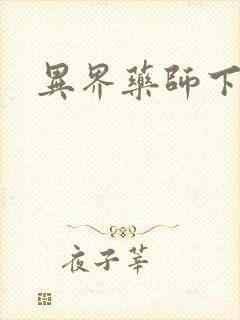 異界藥師下
夜子莘